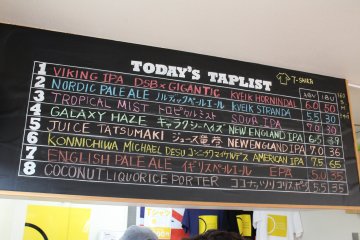 TODAY'S TAPLIST
T-SHIRT
ABV IBU
1 VIKING IPA DSB × GIGANTIC KVEIK HORNINDAL 6.0 50
2 NORDIC PALE ALE ノルディックペールエール KVEIK STRANDA 5.5 30
3 TROPICAL MIST トロピカルミスト SOUR IPA 7.0
4 GALAXY HAZE ギャラクシーヘイズ NEW ENGLAND IPA 6.5
5 JUICE TATSUMAKI ジュース NEW ENGLAND IPA 7.0 36
6 KONNICHIWA MICHAEL DESU AMERICAN IPA 7.5 65
7 ENGLISH PALE ALE イギリスペールエール EPA 5.0 35
8 COCONUT LIQUORICE PORTER ココナッツ 5.5 35